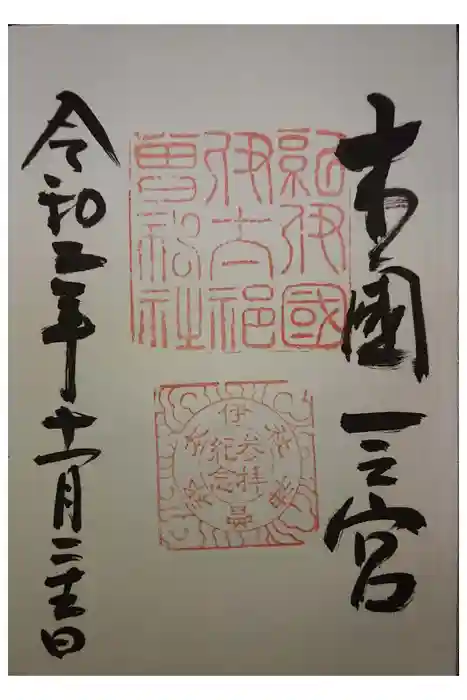 木國一之宮
紀伊國
伊太祁
曽神社
参拝
紀念
令和五年十一月二十五日